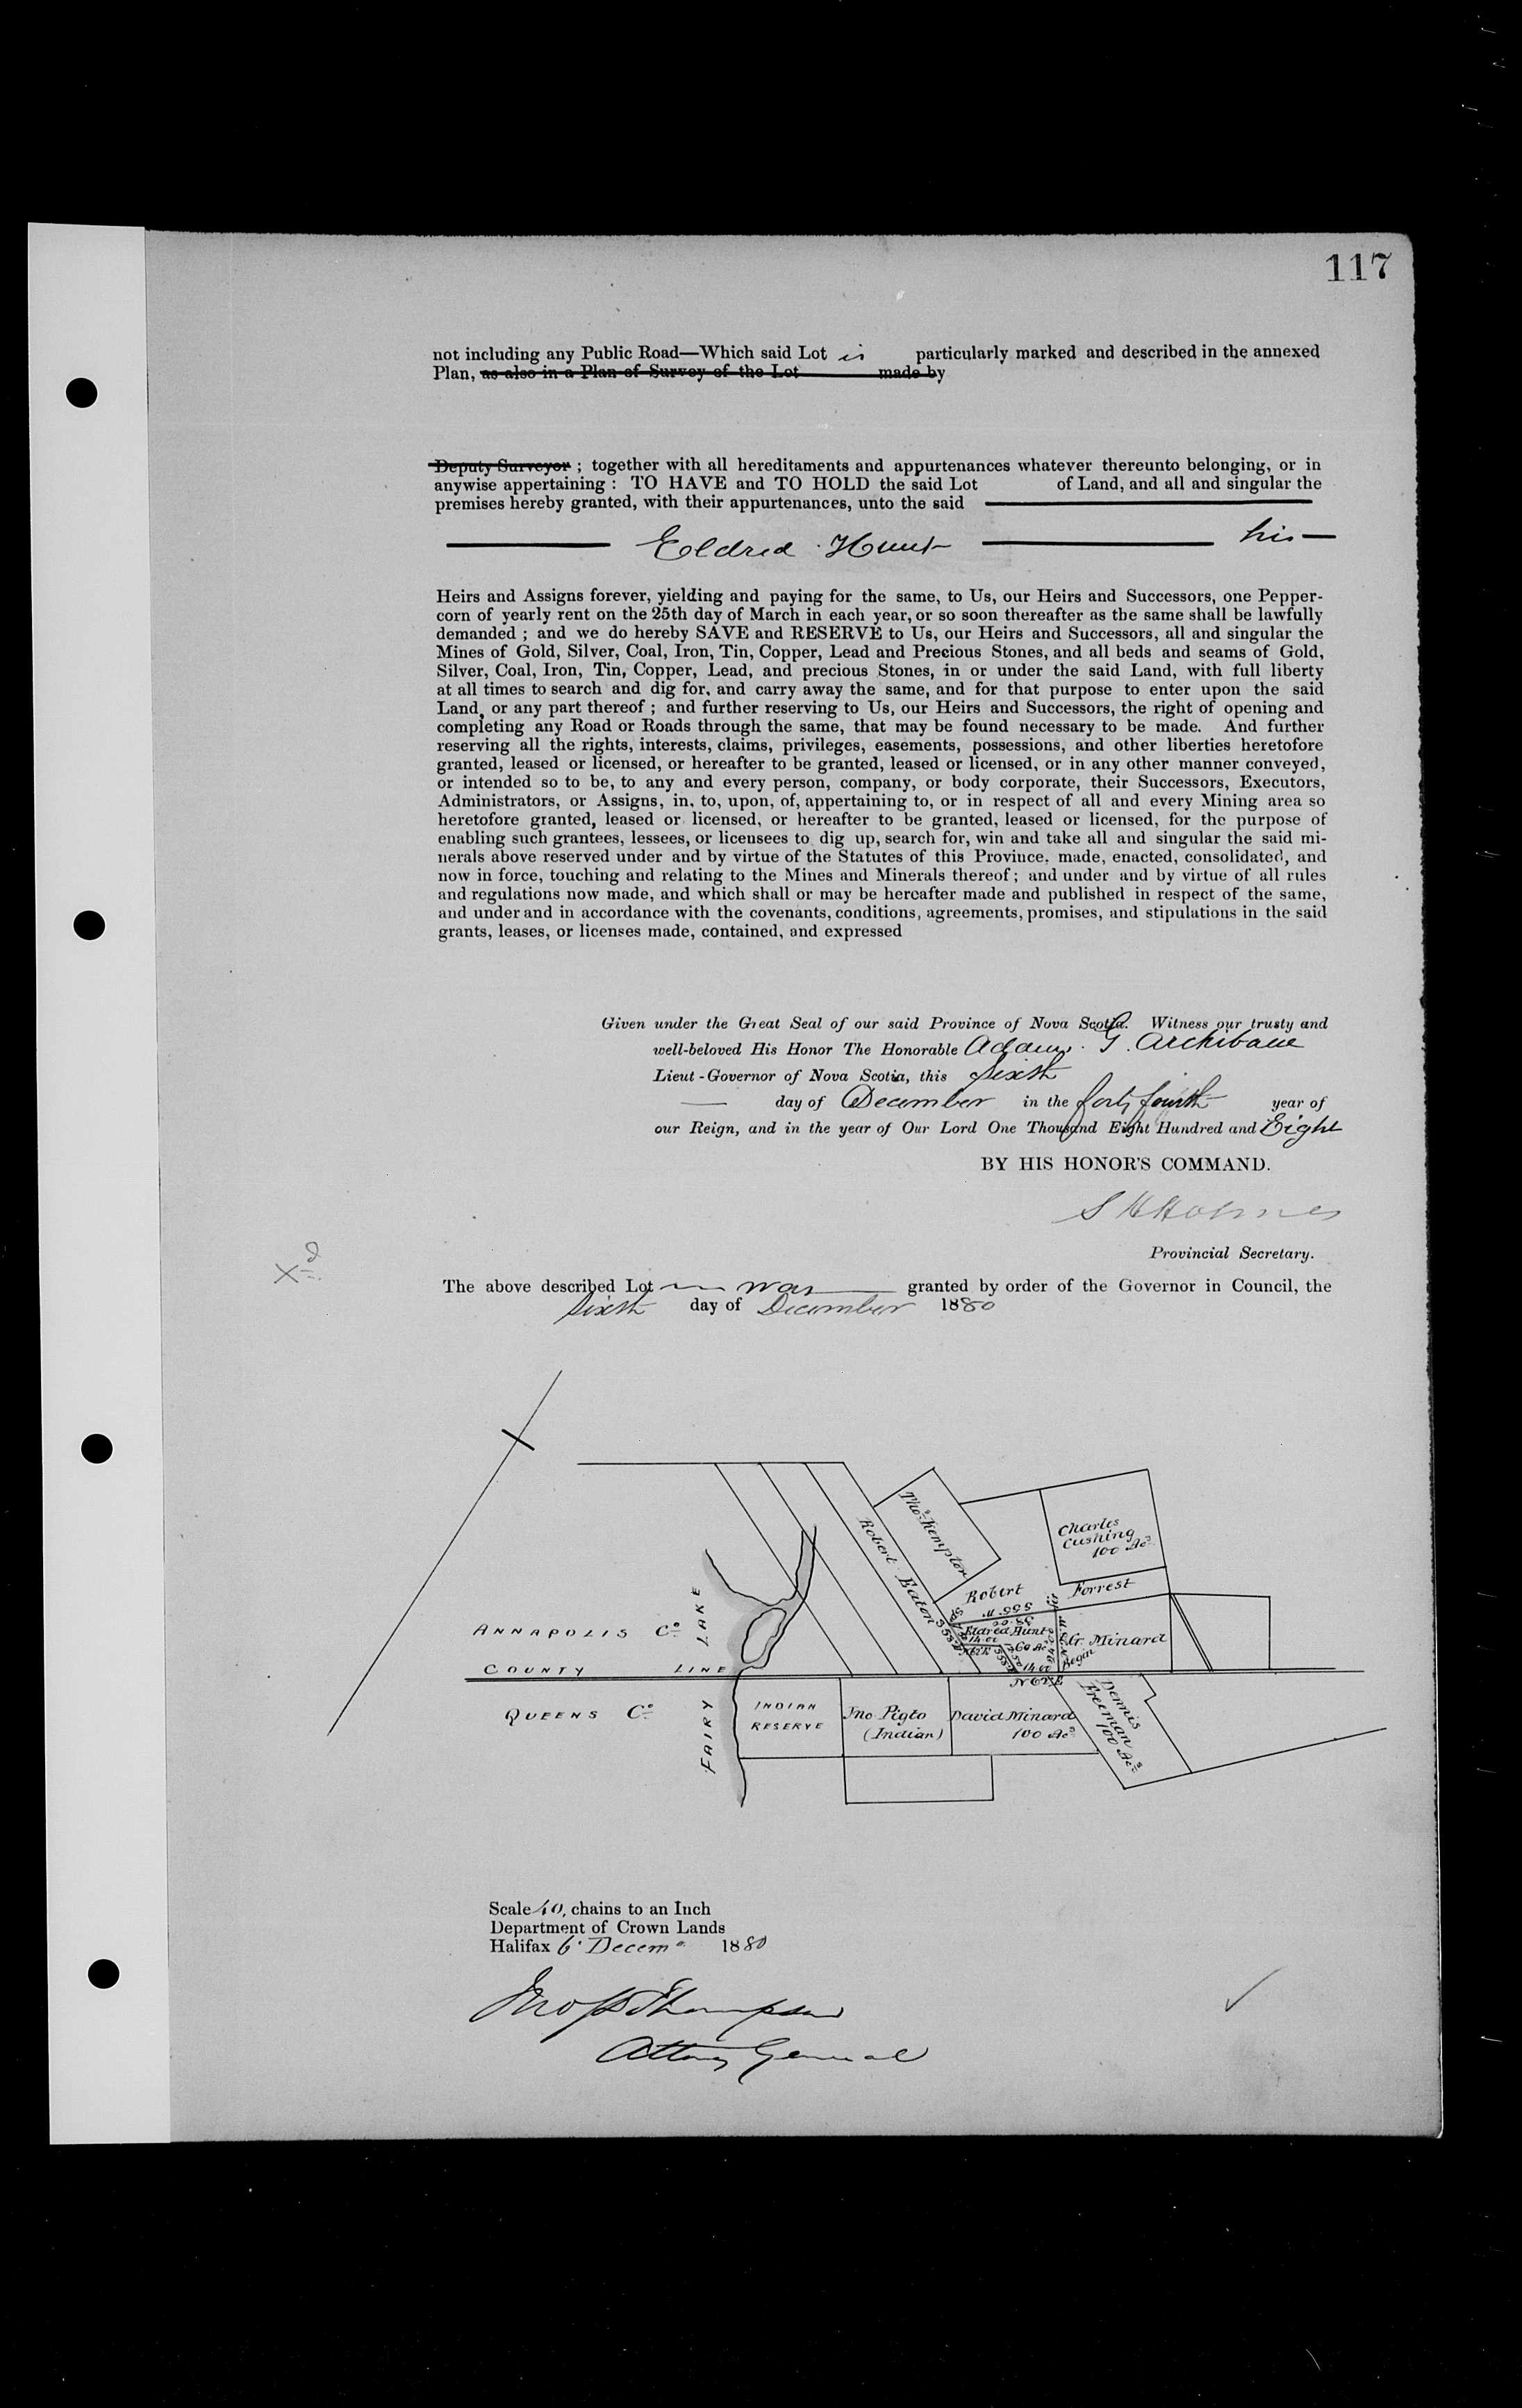 117
not including any Public Road—Which said Lot is particularly marked and described in the annexed
Plan, as also in a Plan of Survey of the Lot made by
Deputy Surveyor ; together with all hereditaments and appurtenances whatever thereunto belonging, or in
anywise appertaining : TO HAVE and TO HOLD the said Lot of Land, and all and singular the
premises hereby granted, with their appurtenances, unto the said
Eldred Hunt his
Heirs and Assigns forever, yielding and paying for the same, to Us, our Heirs and Successors, one Pepper-
corn of yearly rent on the 25th day of March in each year, or so soon thereafter as the same shall be lawfully
demanded ; and we do hereby SAVE and RESERVE to Us, our Heirs and Successors, all and singular the
Mines of Gold, Silver, Coal, Iron, Tin, Copper, Lead and Precious Stones, and all beds and seams of Gold,
Silver, Coal, Iron, Tin, Copper, Lead, and precious Stones, in or under the said Land, with full liberty
at all times to search and dig for, and carry away the same, and for that purpose to enter upon the said
Land, or any part thereof ; and further reserving to Us, our Heirs and Successors, the right of opening and
completing any Road or Roads through the same, that may be found necessary to be made. And further
reserving all the rights, interests, claims, privileges, easements, possessions, and other liberties heretofore
granted, leased or licensed, or hereafter to be granted, leased or licensed, or in any other manner conveyed,
or intended so to be, to any and every person, company, or body corporate, their Successors, Executors,
Administrators, or Assigns, in, to, upon, of, appertaining to, or in respect of all and every Mining area so
heretofore granted, leased or licensed, or hereafter to be granted, leased or licensed, for the purpose of
enabling such grantees, lessees, or licensees to dig up, search for, win and take all and singular the said mi-
nerals above reserved under and by virtue of the Statutes of this Province, made, enacted, consolidated, and
now in force, touching and relating to the Mines and Minerals thereof ; and under and by virtue of all rules
and regulations now made, and which shall or may be hereafter made and published in respect of the same,
and under and in accordance with the covenants, conditions, agreements, promises, and stipulations in the said
grants, leases, or licenses made, contained, and expressed
Given under the Great Seal of our said Province of Nova Scotia. Witness our trusty and
well-beloved His Honor The Honorable Adams. G. Archibald
Lieut-Governor of Nova Scotia, this Sixth
day of December in the forty fourth year of
our Reign, and in the year of Our Lord One Thousand Eight Hundred and Eight
BY HIS HONOR'S COMMAND.
S H Holmes
Provincial Secretary.
Xd
The above described Lot was granted by order of the Governor in Council, the
Sixth day of December 1880
Thos. Kempton
Robert Eaton
Charles
Cushing
100 Acs
Robert Forrest
S 55° W.
38.00
Eldred Hunt
60 Acs
14.00
N 62° E
14.00
Begin
G. Minard
ANNAPOLIS Co.
COUNTY LINE
QUEENS Co.
FAIRY LAKE
INDIAN
RESERVE
Jno Pigto
(Indian)
David Minard
100 Acs
Dennis
Freeman
100 Acs
Scale 40, chains to an Inch
Department of Crown Lands
Halifax 6. Decemr. 1880
Jno S D Thompson
Attorney General